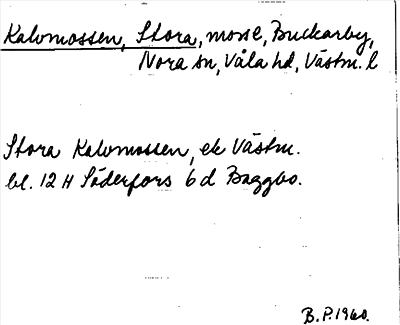 Kalvmossen, Stora, mosse, Buckarby,
Nora sn, Våla hd, Västm. l
Stora Kalvmossen, ek Västm.
bl. 12 H Söderfors 6 d Baggbo.
B.P. 1960.